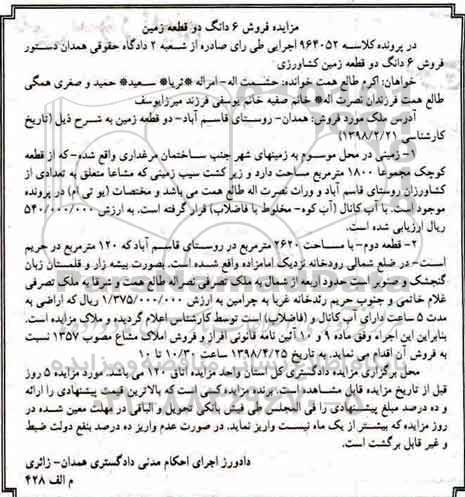 مزایده فروش ۶ دانگ دو قطعه زمین
در پرونده کلاسه ۹۶۴۰۵۲ اجرایی طی رای صادره از شعبه ۲ دادگاه حقوقی همدان دستور
فروش ۶ دانگ دو قطعه زمین کشاورزی
خواهان: اکرم طالع همت خوانده: حشمت اله- امراله *ثریا* سعید* حمید و صغری همگی
طالع همت فرزندان نصرت اله* خانم صفیه خانم یوسفی فرزند میرزایوسف
آدرس ملک مورد فروش: همدان- روستای قاسم آباد- دو قطعه زمین به شرح ذیل (تاریخ
کارشناسی ۱۳۹۸/۲/۲۱)
۱- زمینی در محل موسوم به زمینهای شهر جنب ساختمان مرغداری واقع شده- که از قطعه
کوچک مجموعا ۱۸۰۰ مترمربع مساحت دارد و زیر کشت سیب زمینی که مشاعا متعلق به تعدادی از
کشاورزان روستای قاسم آباد و وراث نصرت اله طالع همت می باشد و مختصات (یو تی ام) در پرونده
موجود است. با آب کانال (آب کوه- مخلوط با فاضلاب) قرار گرفته است. به ارزش ۵۴۰/۰۰۰/۰۰۰
ریال ارزیابی شده است.
۲- قطعه دوم- با مساحت ۲۶۲۰ مترمربع در روستای قاسم آباد که ۱۲۰ مترمربع در حریم
است- در ضلع شمالی رودخانه نزدیک امامزاده واقع شده است. بصورت بیشه زار و قلمستان زبان
گنجشک و صنوبر است حدود اربعه از شمال به ملک تصرفی نصراله طالع همت و شرقا به ملک تصرفی
غلام خاتمی و جنوب حریم رودخانه غربا به چرامین به ارزش ۱/۳۷۵/۰۰۰/۰۰۰ ریال که اراضی به
مدت ۵ ساعت دارای آب کانال و (فاضلاب) است توسط کارشناس اعلام گردیده و ملاک مزایده است.
بنابراین این اجراء وفق ماده ۹ و ۱۰ آئین نامه قانونی افراز و فروش املاک مشاع مصوب ۱۳۵۷ نسبت
به فروش آن اقدام می نماید. به تاریخ ۱۳۹۸/۴/۲۵ ساعت ۱۰/۳۰ تا ۱۰
محل برگزاری مزایده دادگستری کل استان واحد مزایده اتاق ۱۲۰ می باشد. مورد مزایده ۵ روز
قبل از تاریخ مزایده قابل مشاهده است. برنده مزایده کسی است که بالاترین قیمت پیشنهادی را ارائه
و ده درصد مبلغ پیشنهادی را فی المجلس طی فیش بانکی تحویل و الباقی در مهلت معین شده در
روز مزایده که بیشتر از یک ماه نیست واریز نماید. در صورت عدم واریز ده درصد بنفع دولت ضبط
و غیر قابل برگشت است.
دادورز اجرای احکام مدنی دادگستری همدان- زائری
م الف ۴۲۸